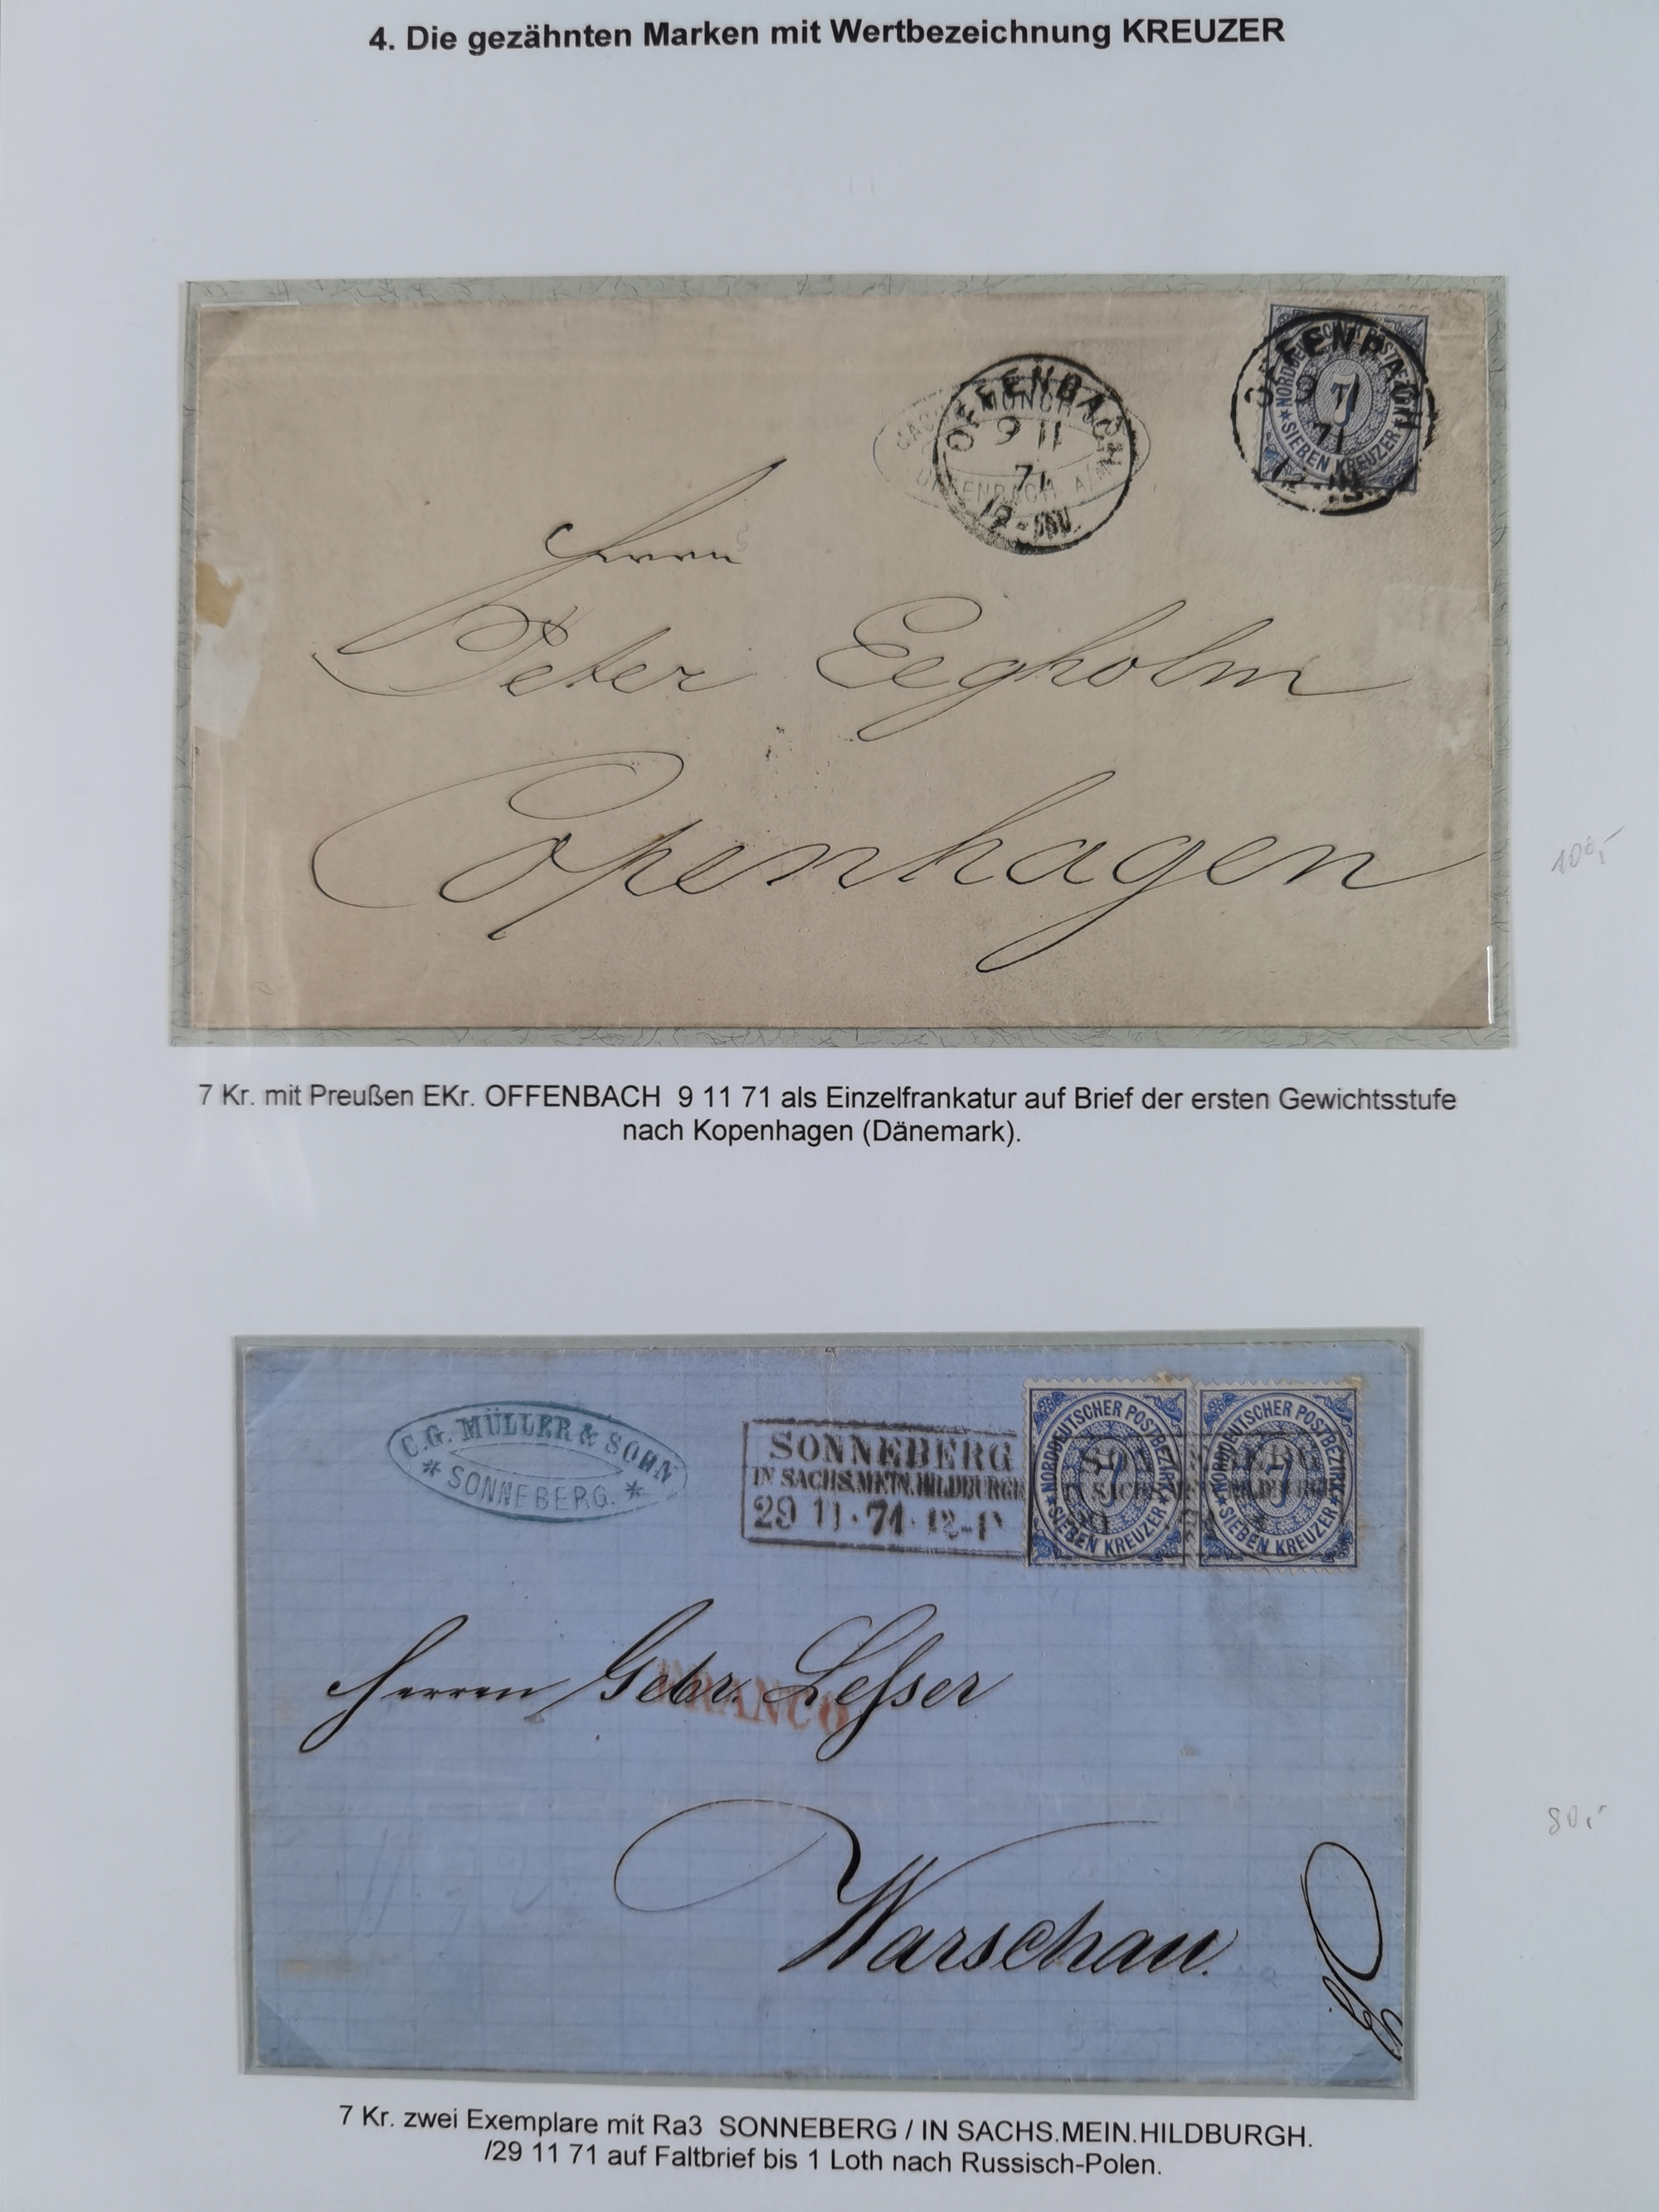 4. Die gezähnten Marken mit Wertbezeichnung KREUZER
OFFENBACH
9 11
71
OFFENBACH A/M
OFFENBACH
9 11
71
NORDDEUTSCHER POSTBEZIRK
7
SIEBEN KREUZER
Herrn
Peter Eegholm
Copenhagen
100,-
7 Kr. mit Preußen EKr. OFFENBACH 9 11 71 als Einzelfrankatur auf Brief der ersten Gewichtsstufe
nach Kopenhagen (Dänemark).
C.G. MÜLLER & SOHN
* SONNEBERG. *
SONNEBERG
IN SACHS.MEIN.HILDBURGH
29 11 · 71 · 12-1
NORDDEUTSCHER POSTBEZIRK
7
SIEBEN KREUZER
NORDDEUTSCHER POSTBEZIRK
7
SIEBEN KREUZER
Herren Gebr. Leſser
FRANCO
Warschau.
80,-
7 Kr. zwei Exemplare mit Ra3 SONNEBERG / IN SACHS.MEIN.HILDBURGH.
/29 11 71 auf Faltbrief bis 1 Loth nach Russisch-Polen.